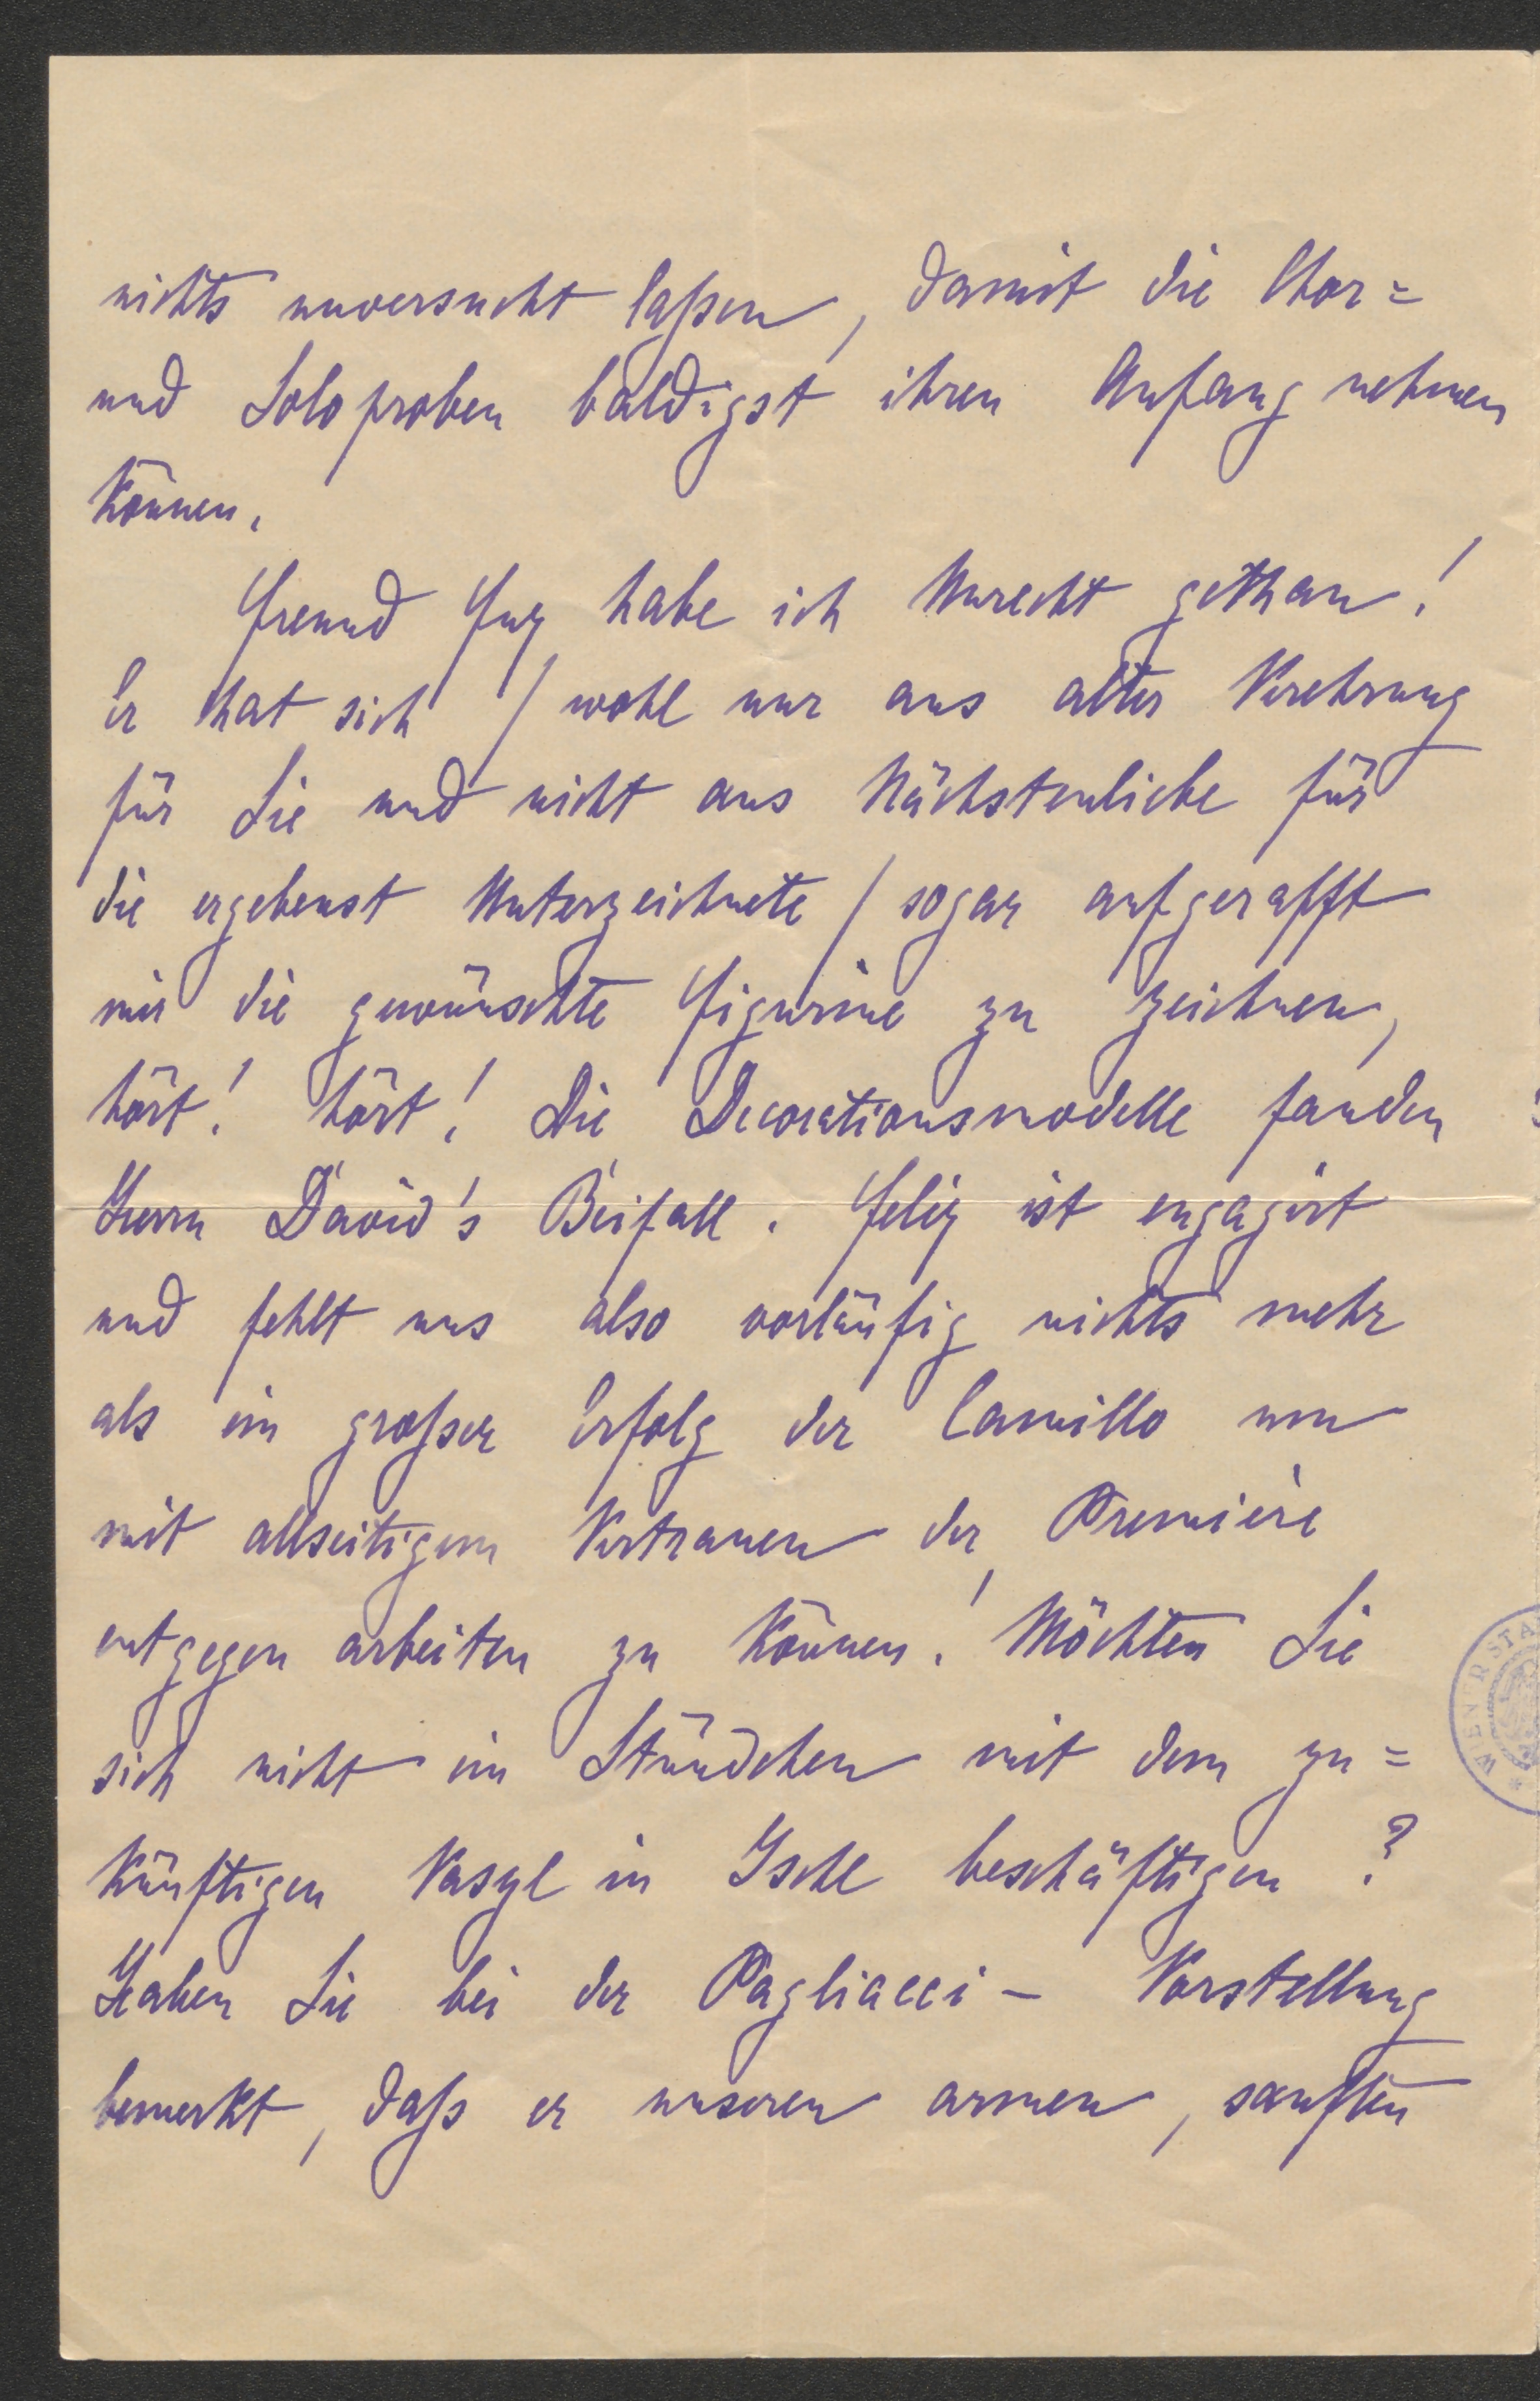 nichts unversucht laßen, damit die Chor=
und Soloproben baldigst ihren Anfang nehmen
können.
Freund Fux habe ich Unrecht gethan!
Er hat sich / wohl nur aus alter Verehrung
für Sie und nicht aus Nächstenliebe für
die ergebenst Unterzeichnete / sogar aufgerafft
mir die gewünschte Figurine zu zeichnen,
hört! hört! Die Decorationsmodelle fanden
Herrn David's Beifall. Felix ist engagirt
und fehlt uns also vorläufig nichts mehr
als ein großer Erfolg der Camillo um
mit allseitigem Vertrauen der Premiére
entgegen arbeiten zu können! Möchten Sie
sich nicht ein Stündchen mit dem zu=
künftigen Vasyl in Ischl beschäftigen?
Haben Sie bei der Pagliacci - Vorstellung
bemerkt, daß er unseren armen, sanften
WIENER STA